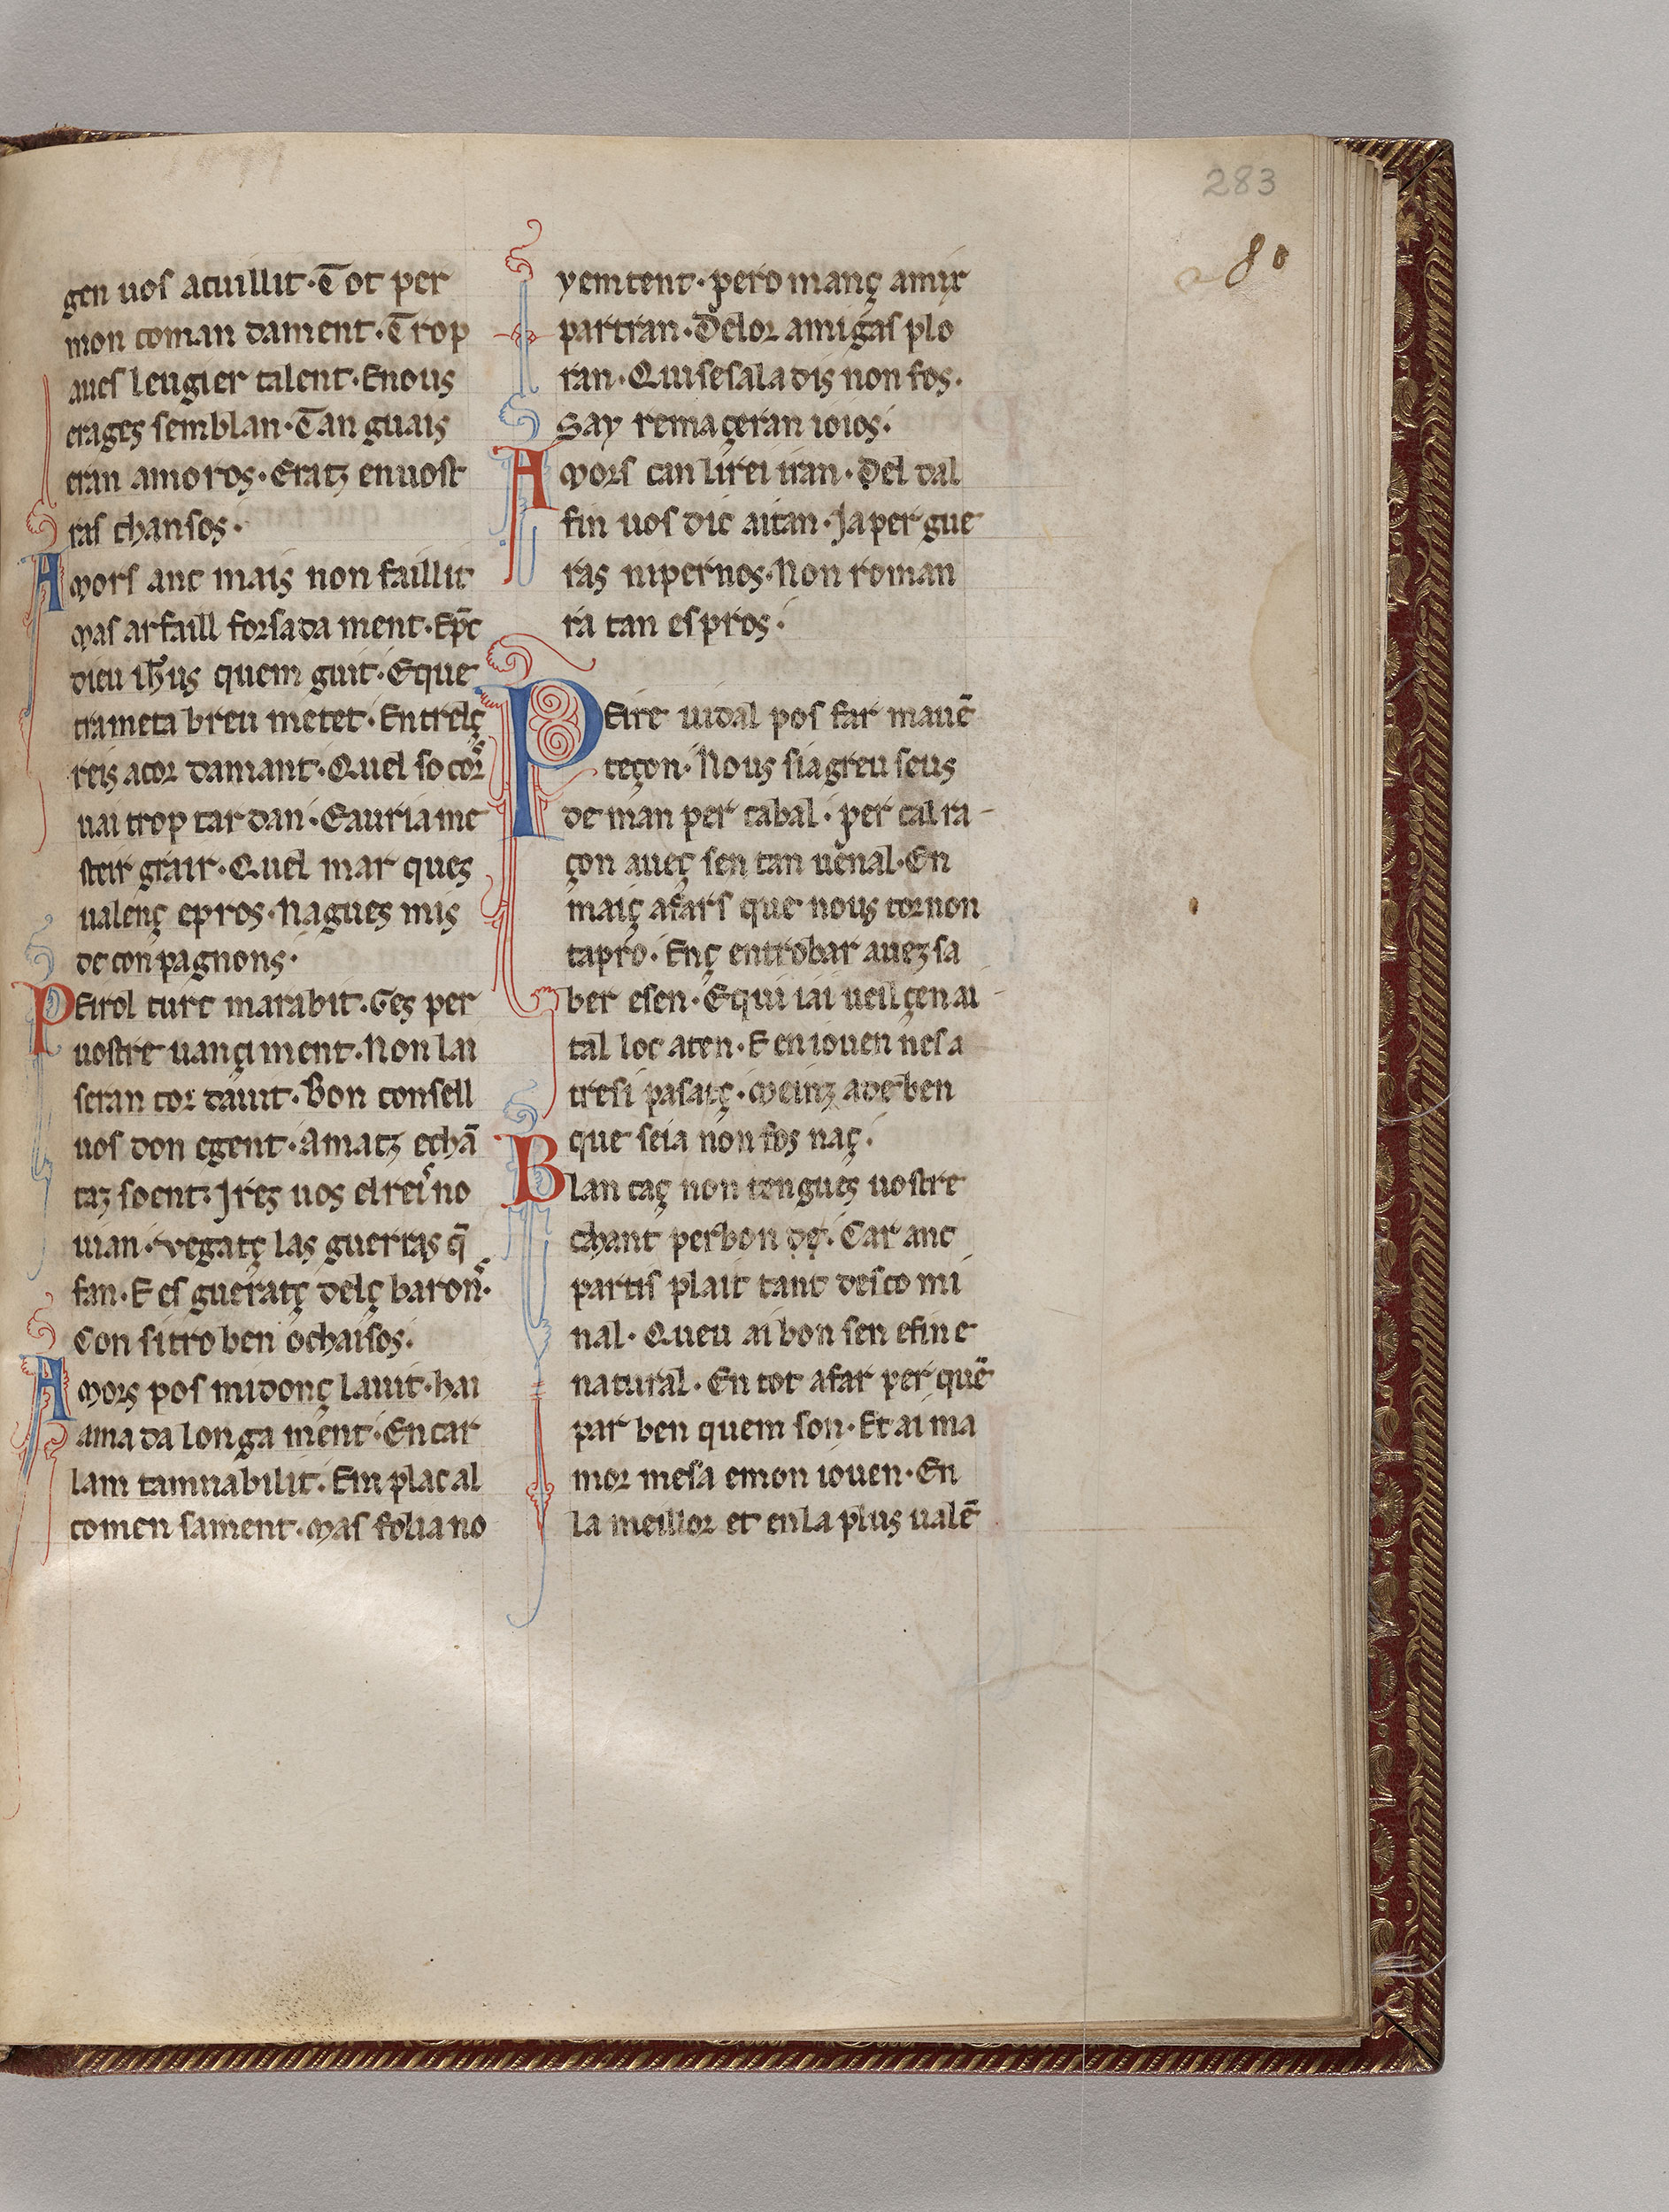 283
80
gen uos acuillit · Tot per
mon coman dament · Trop
aues leugier talent · Enous
erages semblan · Tan guais
eran amoros · Eratz enuost
ras chansos ·
Amors anc mais non faillit
Mas ar faill forsada ment · Epc̄
dieu ih̄us quem guit · Eque
trameta breu metet · Entrelç
reis acor damant · Quel so cor
uai trop tar dan · Eauria me
stier grair · Quel mar ques
ualenç epros · Nagues mis
de conpagnons ·
Peirol turc marabit · Ges per
uostre uançi ment · Non lai
seran tor dauit · Bon consell
uos don egent · Amatz echā
taz soent · Jres uos el rei no
uian · Vegatç las guerras q̄
fan · E es gueratç delç baron ·
Con sitro ben ochaisos ·
Amors pos midonç lauit · hai
ama da longa ment · Encar
lam tamnabilit · Em plac al
comen sament · Mas folia no
yemtent · pero manç amix
partran · Delor amigas plo
ran · Qui sesaladis non fos ·
Say remaçeran ioios ·
Amors can lirei iran · Del dal
fin uos dic aitan · Ja per gue
ras nipernos · Non roman
ra tan es pros ·
Peire uidal pos far mauē
teçon · Nous sia greu seus
deman per cabal · per cal ra-
çon aueç sen tan uenal · En
maiç afars que nous tornon
tapro · Enç entrobar auez sa
ber esen · E qui iai ueilçen ai-
tal loc aten · E en iouen nes a
tresi pasatç · Meinz a de ben
que seia non fos naç ·
Blan caç non tengues uostre
chant per bon de · Car anc
partis plait tant desco mi
nal · Queu ai bon sen efin e
natural · En tot afar per que
par ben quem son · Et ai ma
mor mesa emon iouen · En
la meillor et enla plus ualē